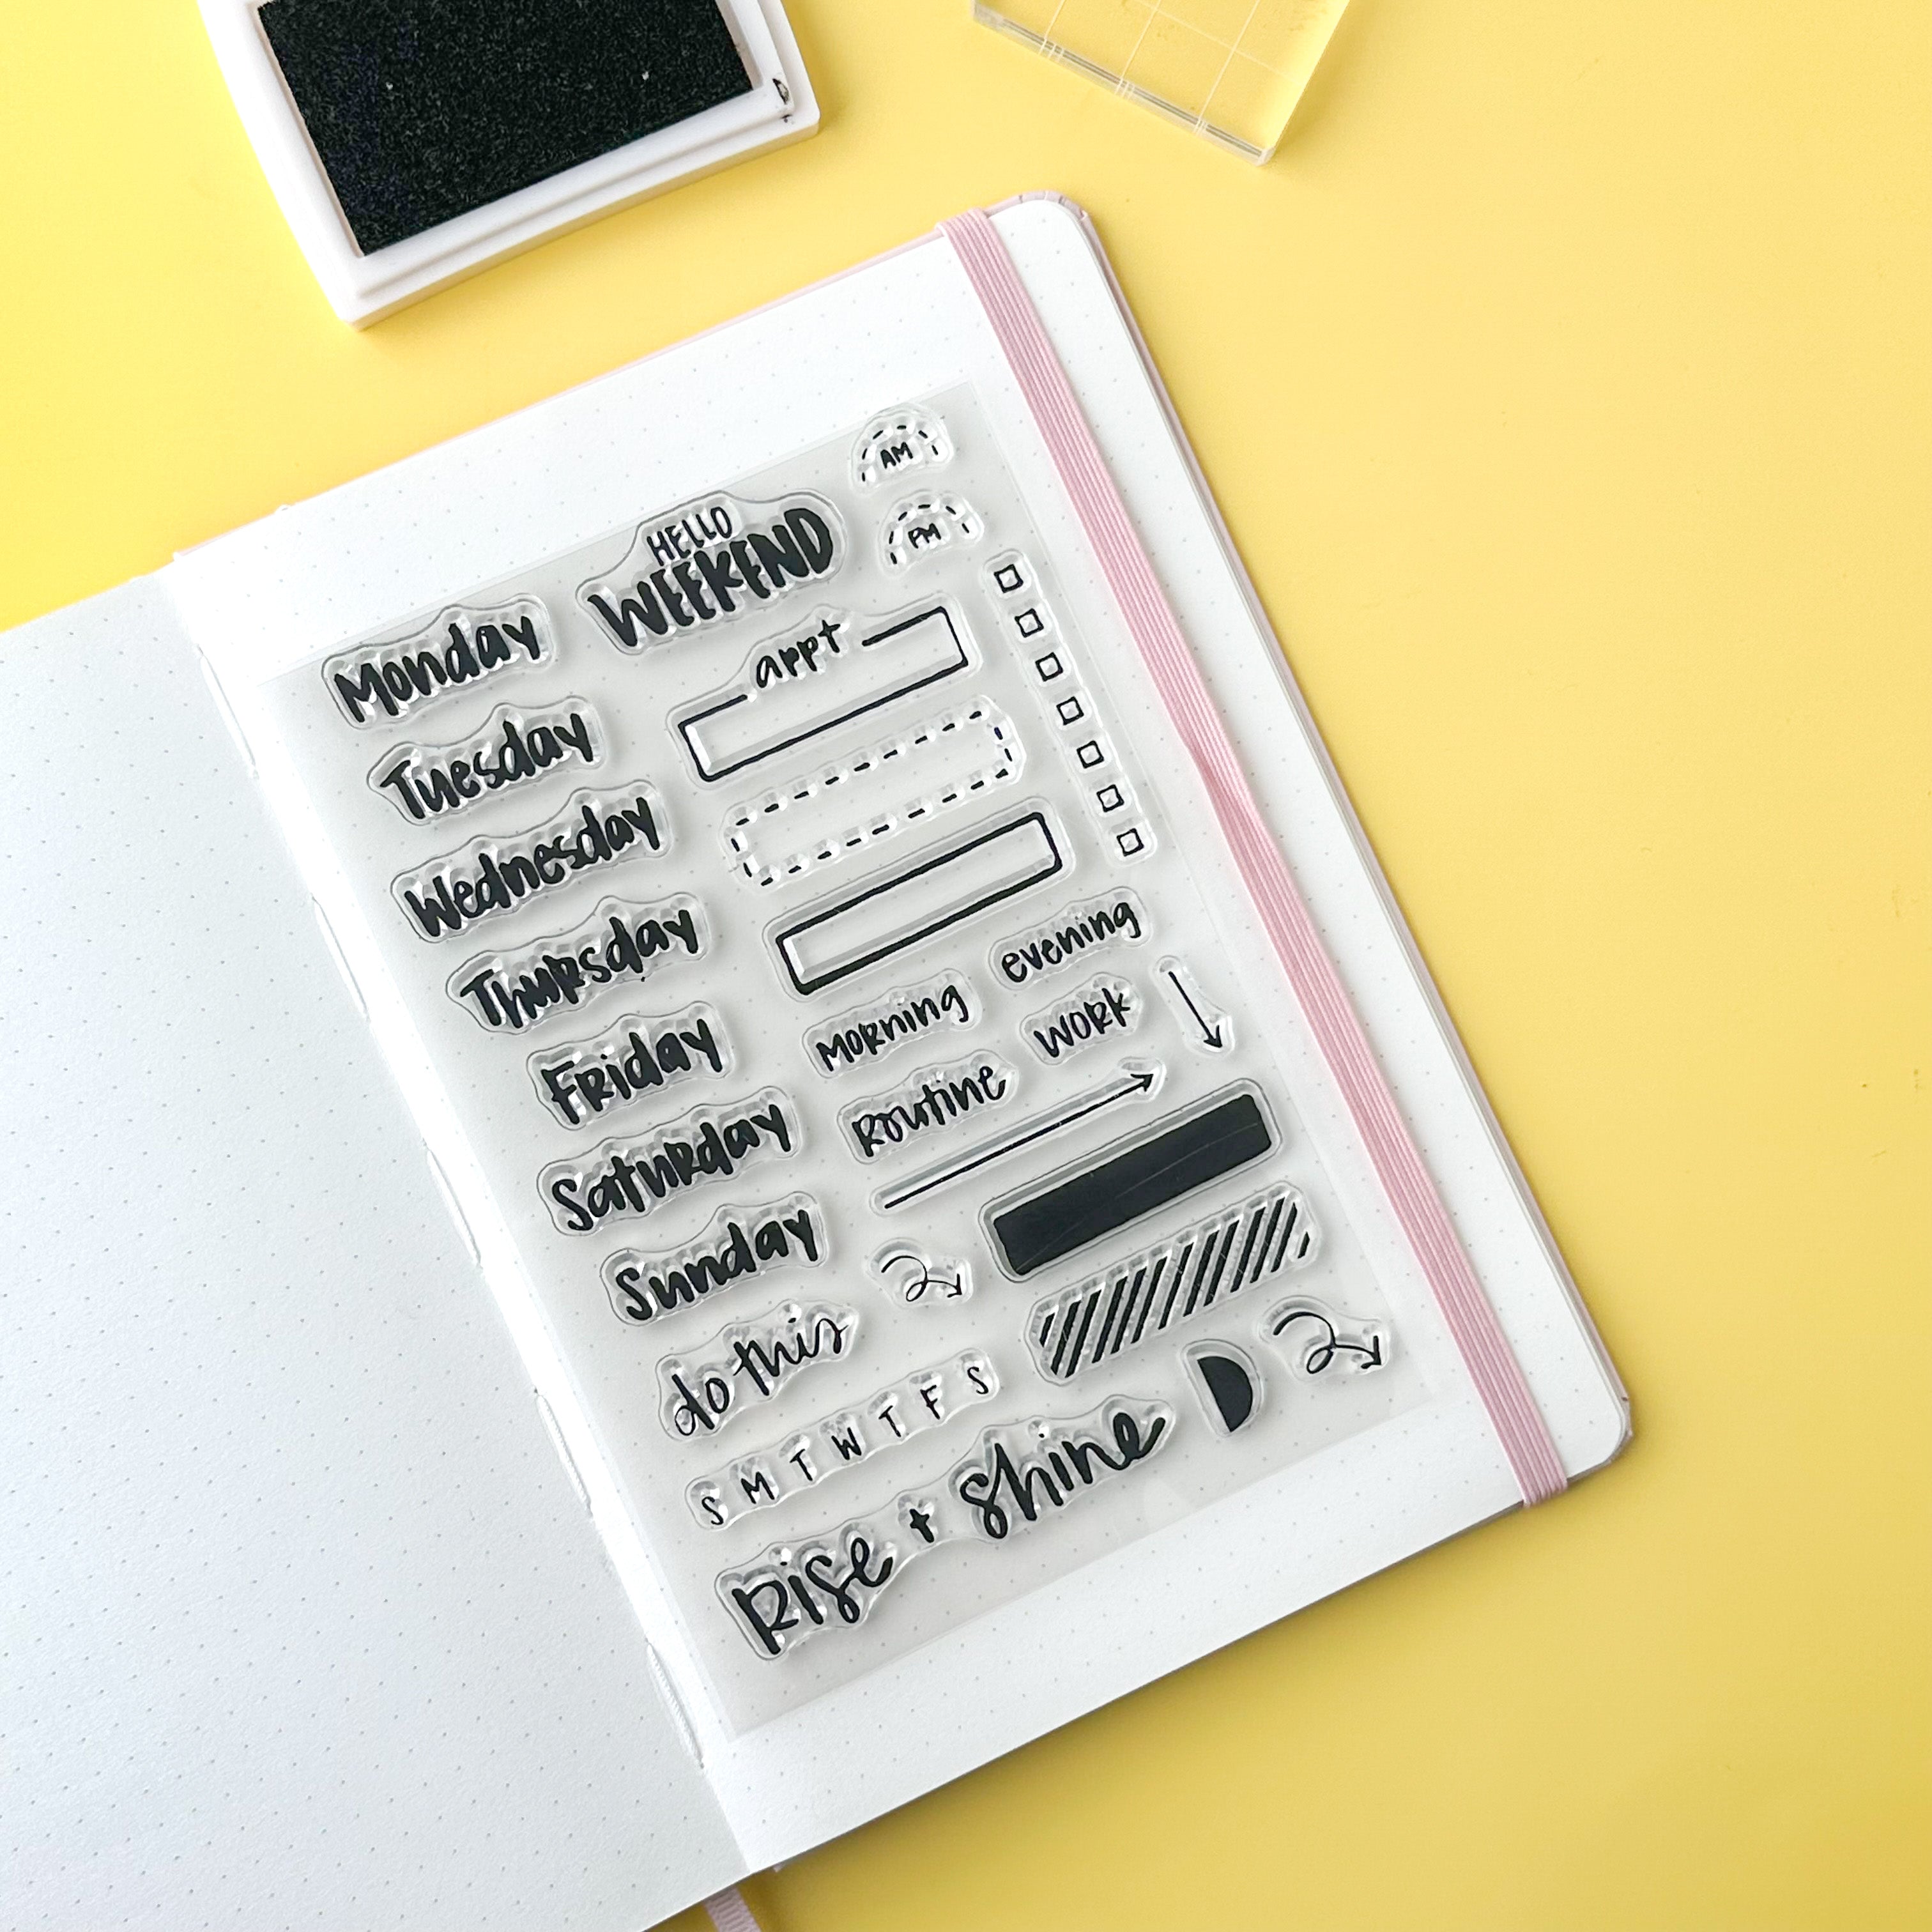 AM
PM
HELLO
WEEKEND
Monday
appt
Tuesday
Wednesday
Thursday
evening
Morning
work
Friday
Routine
Saturday
Sunday
do this
S M T W T F S
Rise + Shine